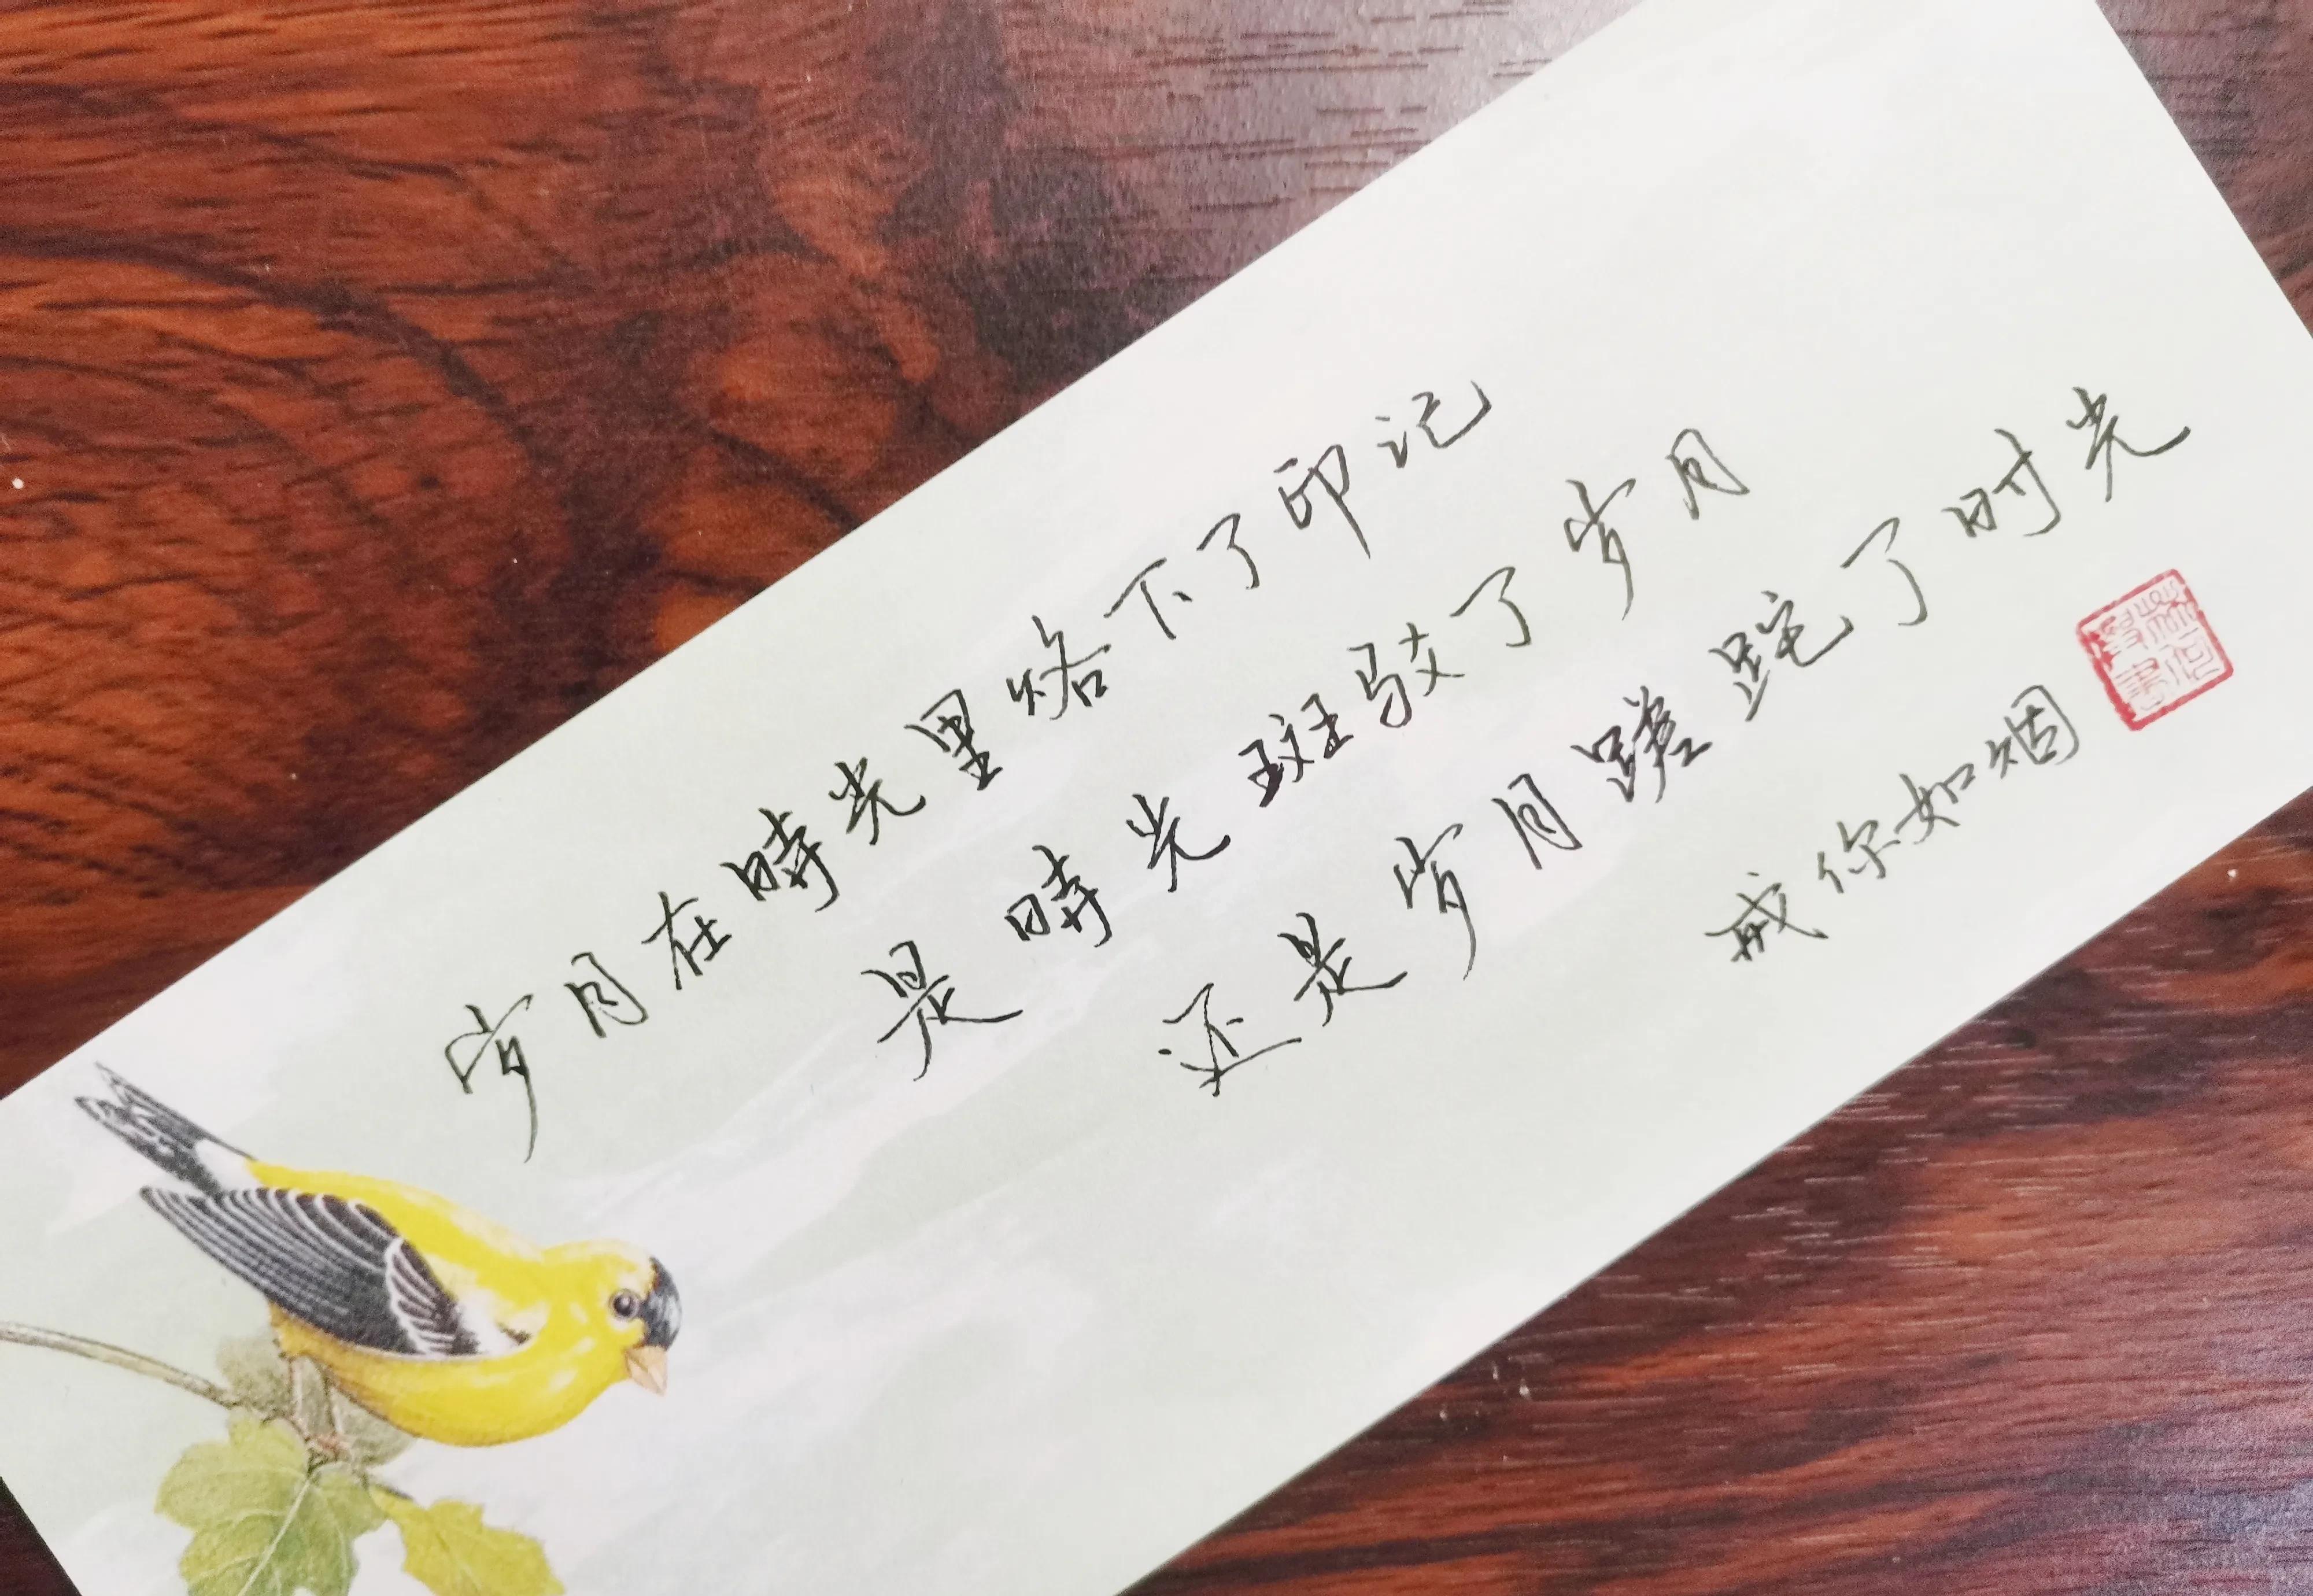 岁月在時光里烙下了印记
是時光斑驳了岁月
还是岁月蹉跎了时光
戒你如烟